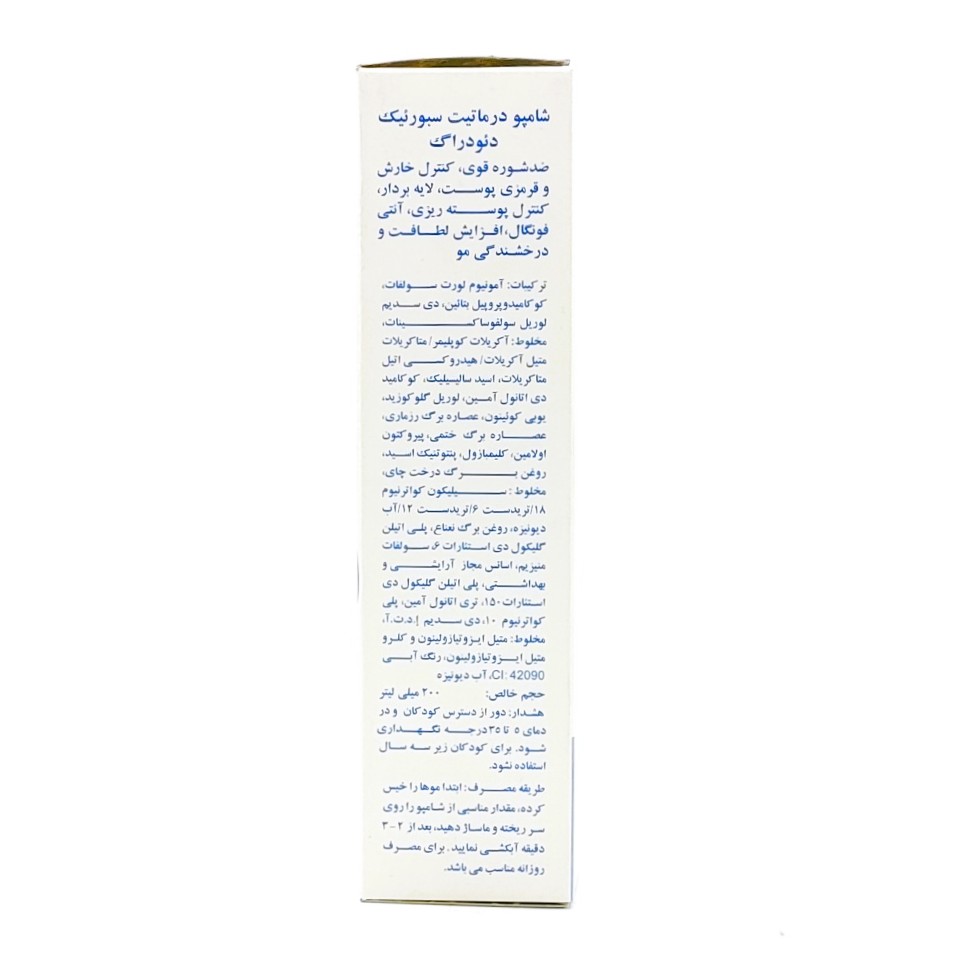 شامپو درماتیت سبورئیک
دئودراگ
ضدشوره قوی، کنترل خارش
و قرمزی پوست، لایه بردار،
کنترل پوسته ریزی، آنتی
فونگال، افزایش لطافت و
درخشندگی مو
ترکیبات: آمونیوم لورت سولفات،
کوکامیدوپروپیل بتائین، دی سدیم
لوریل سولفوساکسینات،
مخلوط: آکریلات کوپلیمر/متاکریلات
متیل آکریلات/هیدروکسی اتیل
متاکریلات، اسید سالیسیلیک، کوکامید
دی اتانول آمین، لوریل گلوکوزید،
یوبی کوئینون، عصاره برگ رزماری،
عصاره برگ ختمی، پیروکتون
اولامین، کلیمبازول، پنتوتنیک اسید،
روغن برگ درخت چای،
مخلوط: سیلیکون کواترنیوم
۱۸/تریدست ۶/تریدست ۱۲/آب
دیونیزه، روغن برگ نعناع، پلی اتیلن
گلیکول دی استئارات ۶، سولفات
منیزیم، اسانس مجاز آرایشی و
بهداشتی، پلی اتیلن گلیکول دی
استئارات۱۵۰، تری اتانول آمین، پلی
کواترنیوم ۱۰، دی سدیم إ.د.ت.آ،
مخلوط: متیل ایزوتیازولینون و کلرو
متیل ایزوتیازولینون، رنگ آبی
CI: 42090، آب دیونیزه
حجم خالص: ۲۰۰ میلی لیتر
هشدار: دور از دسترس کودکان و در
دمای ۵ تا ۳۵ درجه نگهداری
شود. برای کودکان زیر سه سال
استفاده نشود.
طریقه مصرف: ابتدا موها را خیس
کرده، مقدار مناسبی از شامپو را روی
سر ریخته و ماساژ دهید، بعد از ۲-۳
دقیقه آبکشی نمایید. برای مصرف
روزانه مناسب می باشد.